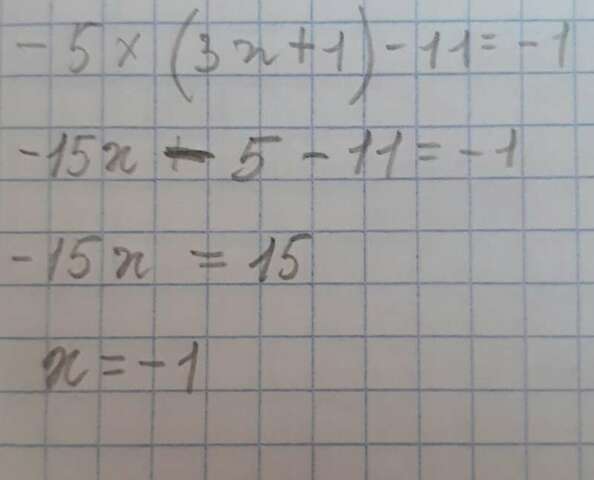 -5 × (3x+1) - 11 = -1
-15x - 5 - 11 = -1
-15x = 15
x = -1